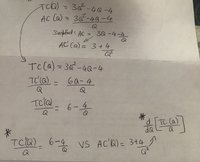 TC(Q) = 3Q² - 4Q - 4
AC(Q) = 3Q² - 4Q - 4 / Q
Simplified: AC = 3Q - 4 - 4/Q
AC'(Q) = 3 + 4/Q²
TC(Q) = 3Q² - 4Q - 4
TC'(Q)/Q = 6Q - 4 / Q
TC'(Q)/Q = 6 - 4/Q
* d/dQ [TC(Q)/Q]
* TC'(Q)/Q = 6 - 4/Q VS AC'(Q) = 3 + 4/Q²